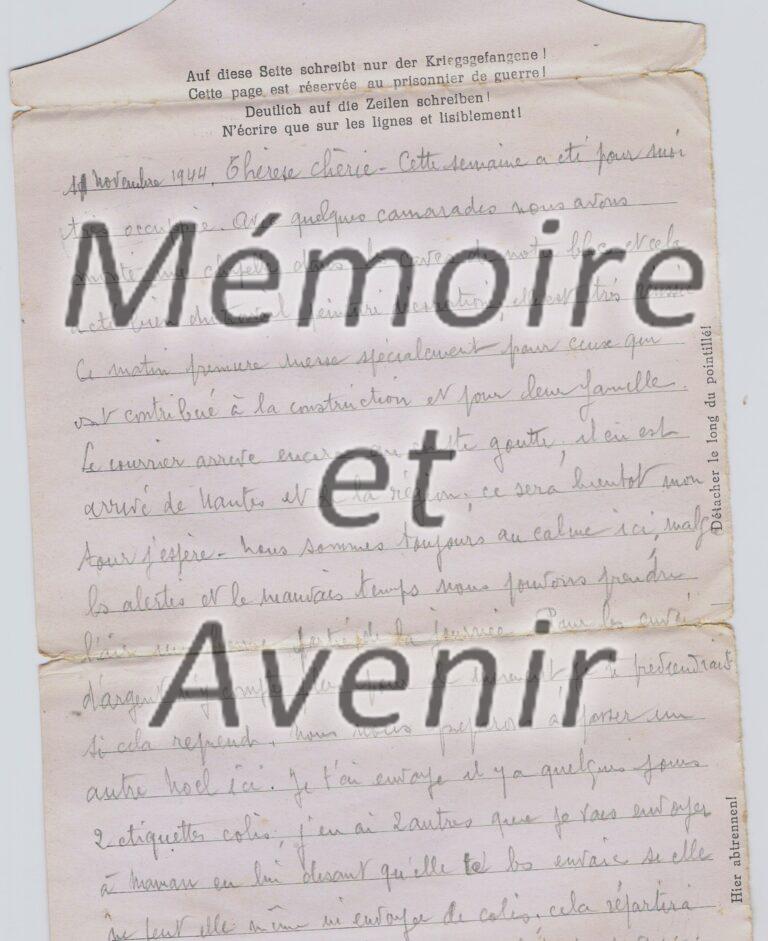 Auf diese Seite schreibt nur der Kriegsgefangene!
Cette page est réservée au prisonnier de guerre!
Deutlich auf die Zeilen schreiben!
N'écrire que sur les lignes et lisiblement!
novembre 1944. Thérèse chérie - Cette semaine a été pour moi
très occupée. Avec quelques camarades nous avons
Mémoire
monté une chapelle dans les caves de notre bloc et cela
peinture décoration, elle est très réussie
Ce matin première messe spécialement pour ceux qui
ont contribué à la construction et pour leur famille.
Le courrier arrive encore goutte, il en est
et
arrivé de Nantes et de la région, ce sera bientot mon
tour j'espère - nous sommes toujours au calme ici, malg
les alertes et le mauvais temps nous pouvons prendre
l'air partie de la journée. Pour les
Avenir
d'argent
si cela reprend, nous nous préparons à passer un
autre Noel ici. Je t'ai envoyé il y a quelques jours
2 etiquettes colis, j'en ai 2 autres que je vais envoyer
à maman en lui disant qu'elle les envoie si elle
ne peut elle même m'envoyer de colis. cela répartira
Détacher le long du pointillé!
Hier abtrennen!